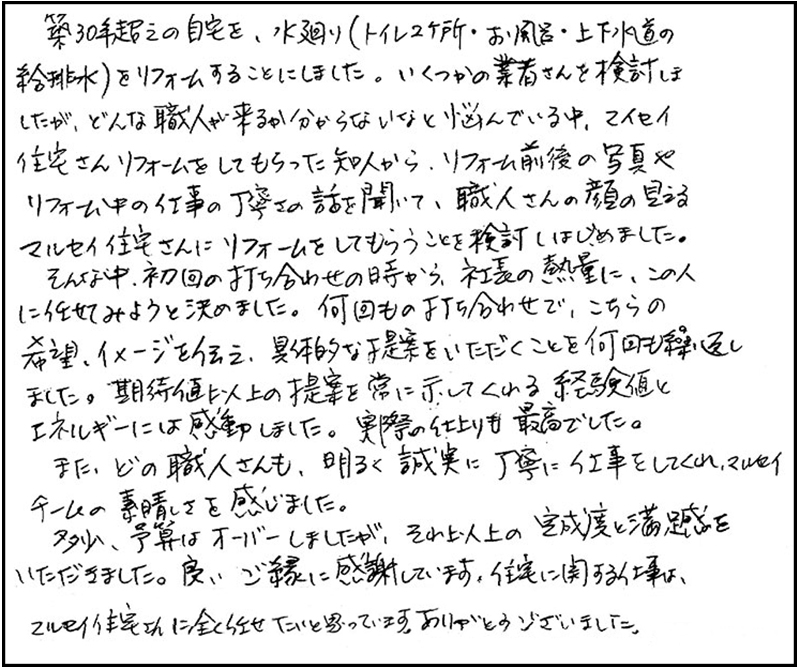 築30年超えの自宅を、水廻り(トイレ2ケ所・お風呂・上下水道の
給排水)をリフォームすることにしました。いくつかの業者さんを検討しま
したが、どんな職人が来るか分からないなと悩んでいる中、マイセイ
住宅さんリフォームをしてもらった知人から、リフォーム前後の写真や
リフォーム中の仕事の丁寧さの話を聞いて、職人さんの顔の見える
マルセイ住宅さんにリフォームをしてもらうことを検討しはじめました。
そんな中、初回の打ち合わせの時から、社長の熱量に、この人
に任せてみようと決めました。何回もの打ち合わせで、こちらの
希望、イメージを伝え、具体的な提案をいただくことを何回も繰り返し
ました。期待値以上の提案を常に示してくれる経験値と
エネルギーには感動しました。実際の仕上りも最高でした。
また、どの職人さんも、明るく誠実に丁寧に仕事をしてくれ、マルセイ
チームの素晴しさを感じました。
多少、予算はオーバーしましたが、それ以上の完成度と満足感を
いただきました。良いご縁に感謝しています。住宅に関する仕事は、
マルセイ住宅さんに全て任せたいと思っています。ありがとうございました。